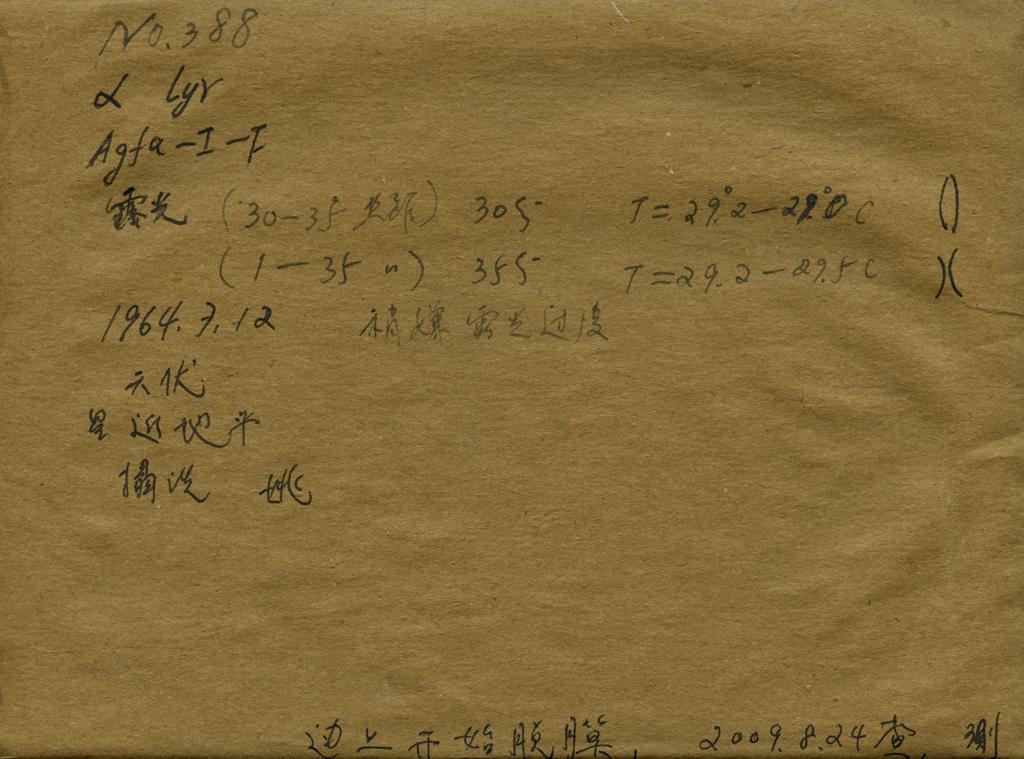 No. 388
α Lyr
Agfa-I-F
露光 (30-35 ) 305 T = 29.°2 - 29.°0 C ()
(1 - 35 〃) 355 T = 29.2 - 29.5 C )(
1964.7.12 稍嫌露光过度
六伏
星近地平
攝洗 姚
边上开始脱膜, 2009.8.24查,